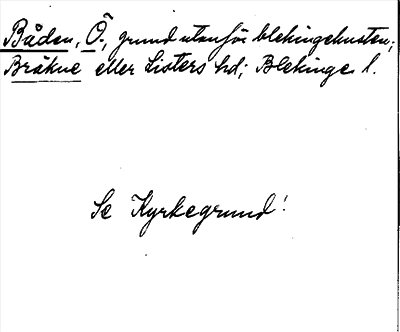 Båden, Ö., grund utanför blekingekusten;
Bräkne eller Listers hd; Blekinge l.
Se Kyrkegrund!